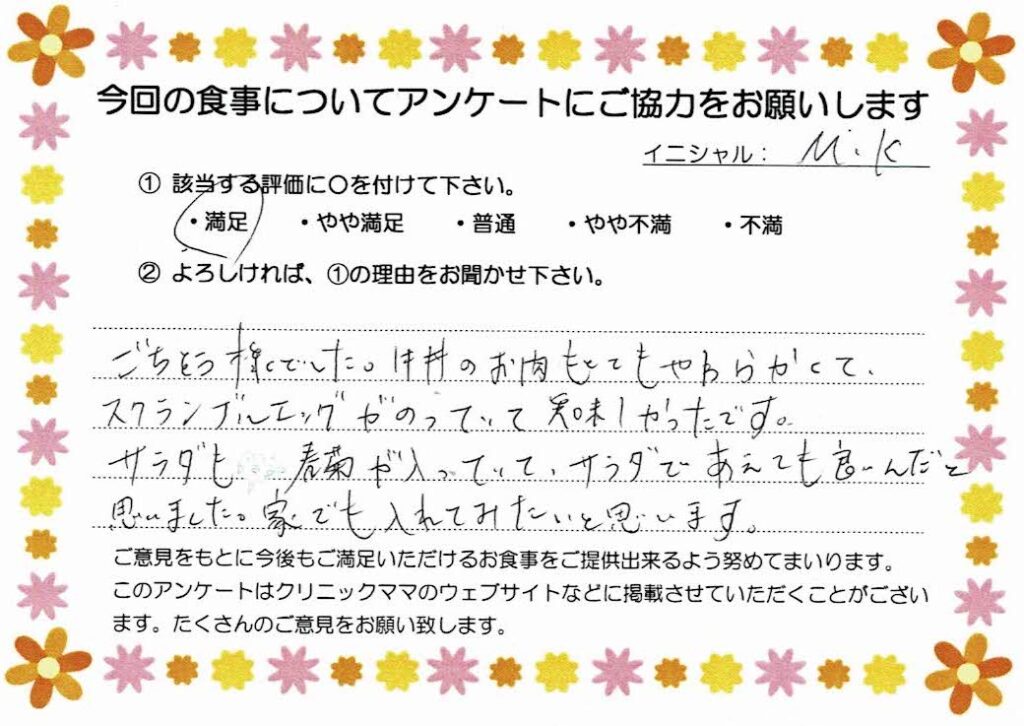 今回の食事についてアンケートにご協力をお願いします
イニシャル： M.K
① 該当する評価に〇を付けて下さい。
・満足 ・やや満足 ・普通 ・やや不満 ・不満
② よろしければ、①の理由をお聞かせ下さい。
ごちそう様でした。牛丼のお肉もとてもやわらかくて、
スクランブルエッグがのっていて美味しかったです。
サラダも 春菊が入っていて、サラダであえても良いんだと
思いました。家でも入れてみたいと思います。
ご意見をもとに今後もご満足いただけるお食事をご提供出来るよう努めてまいります。
このアンケートはクリニックママのウェブサイトなどに掲載させていただくことがござい
ます。たくさんのご意見をお願い致します。